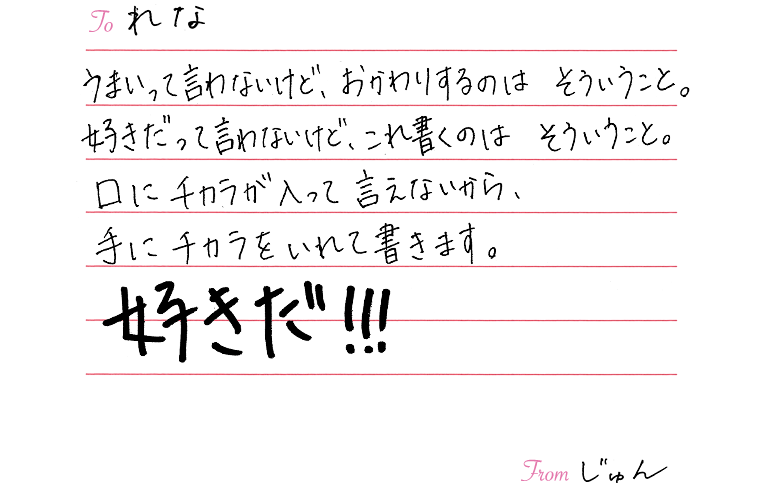 To れな
うまいって言わないけど、おかわりするのは そういうこと。
好きだって言わないけど、これ書くのは そういうこと。
口にチカラが入って言えないから、
手にチカラをいれて書きます。
好きだ!!!
From じゅん